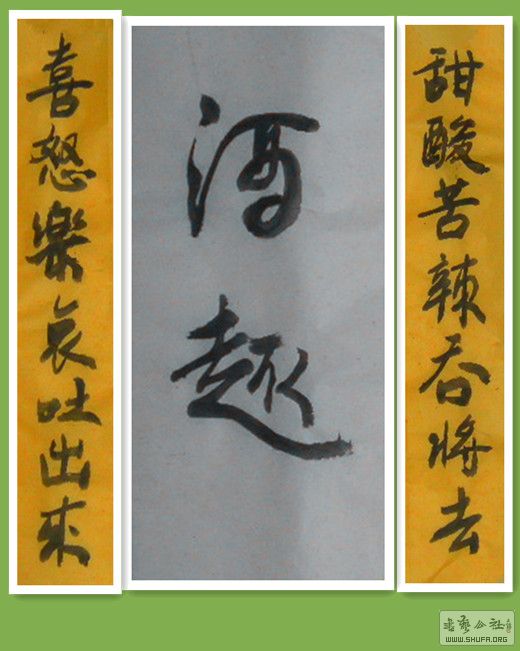 甜酸苦辣吞將去
酒趣
喜怒樂哀吐出來
WWW.SHUFA.ORG